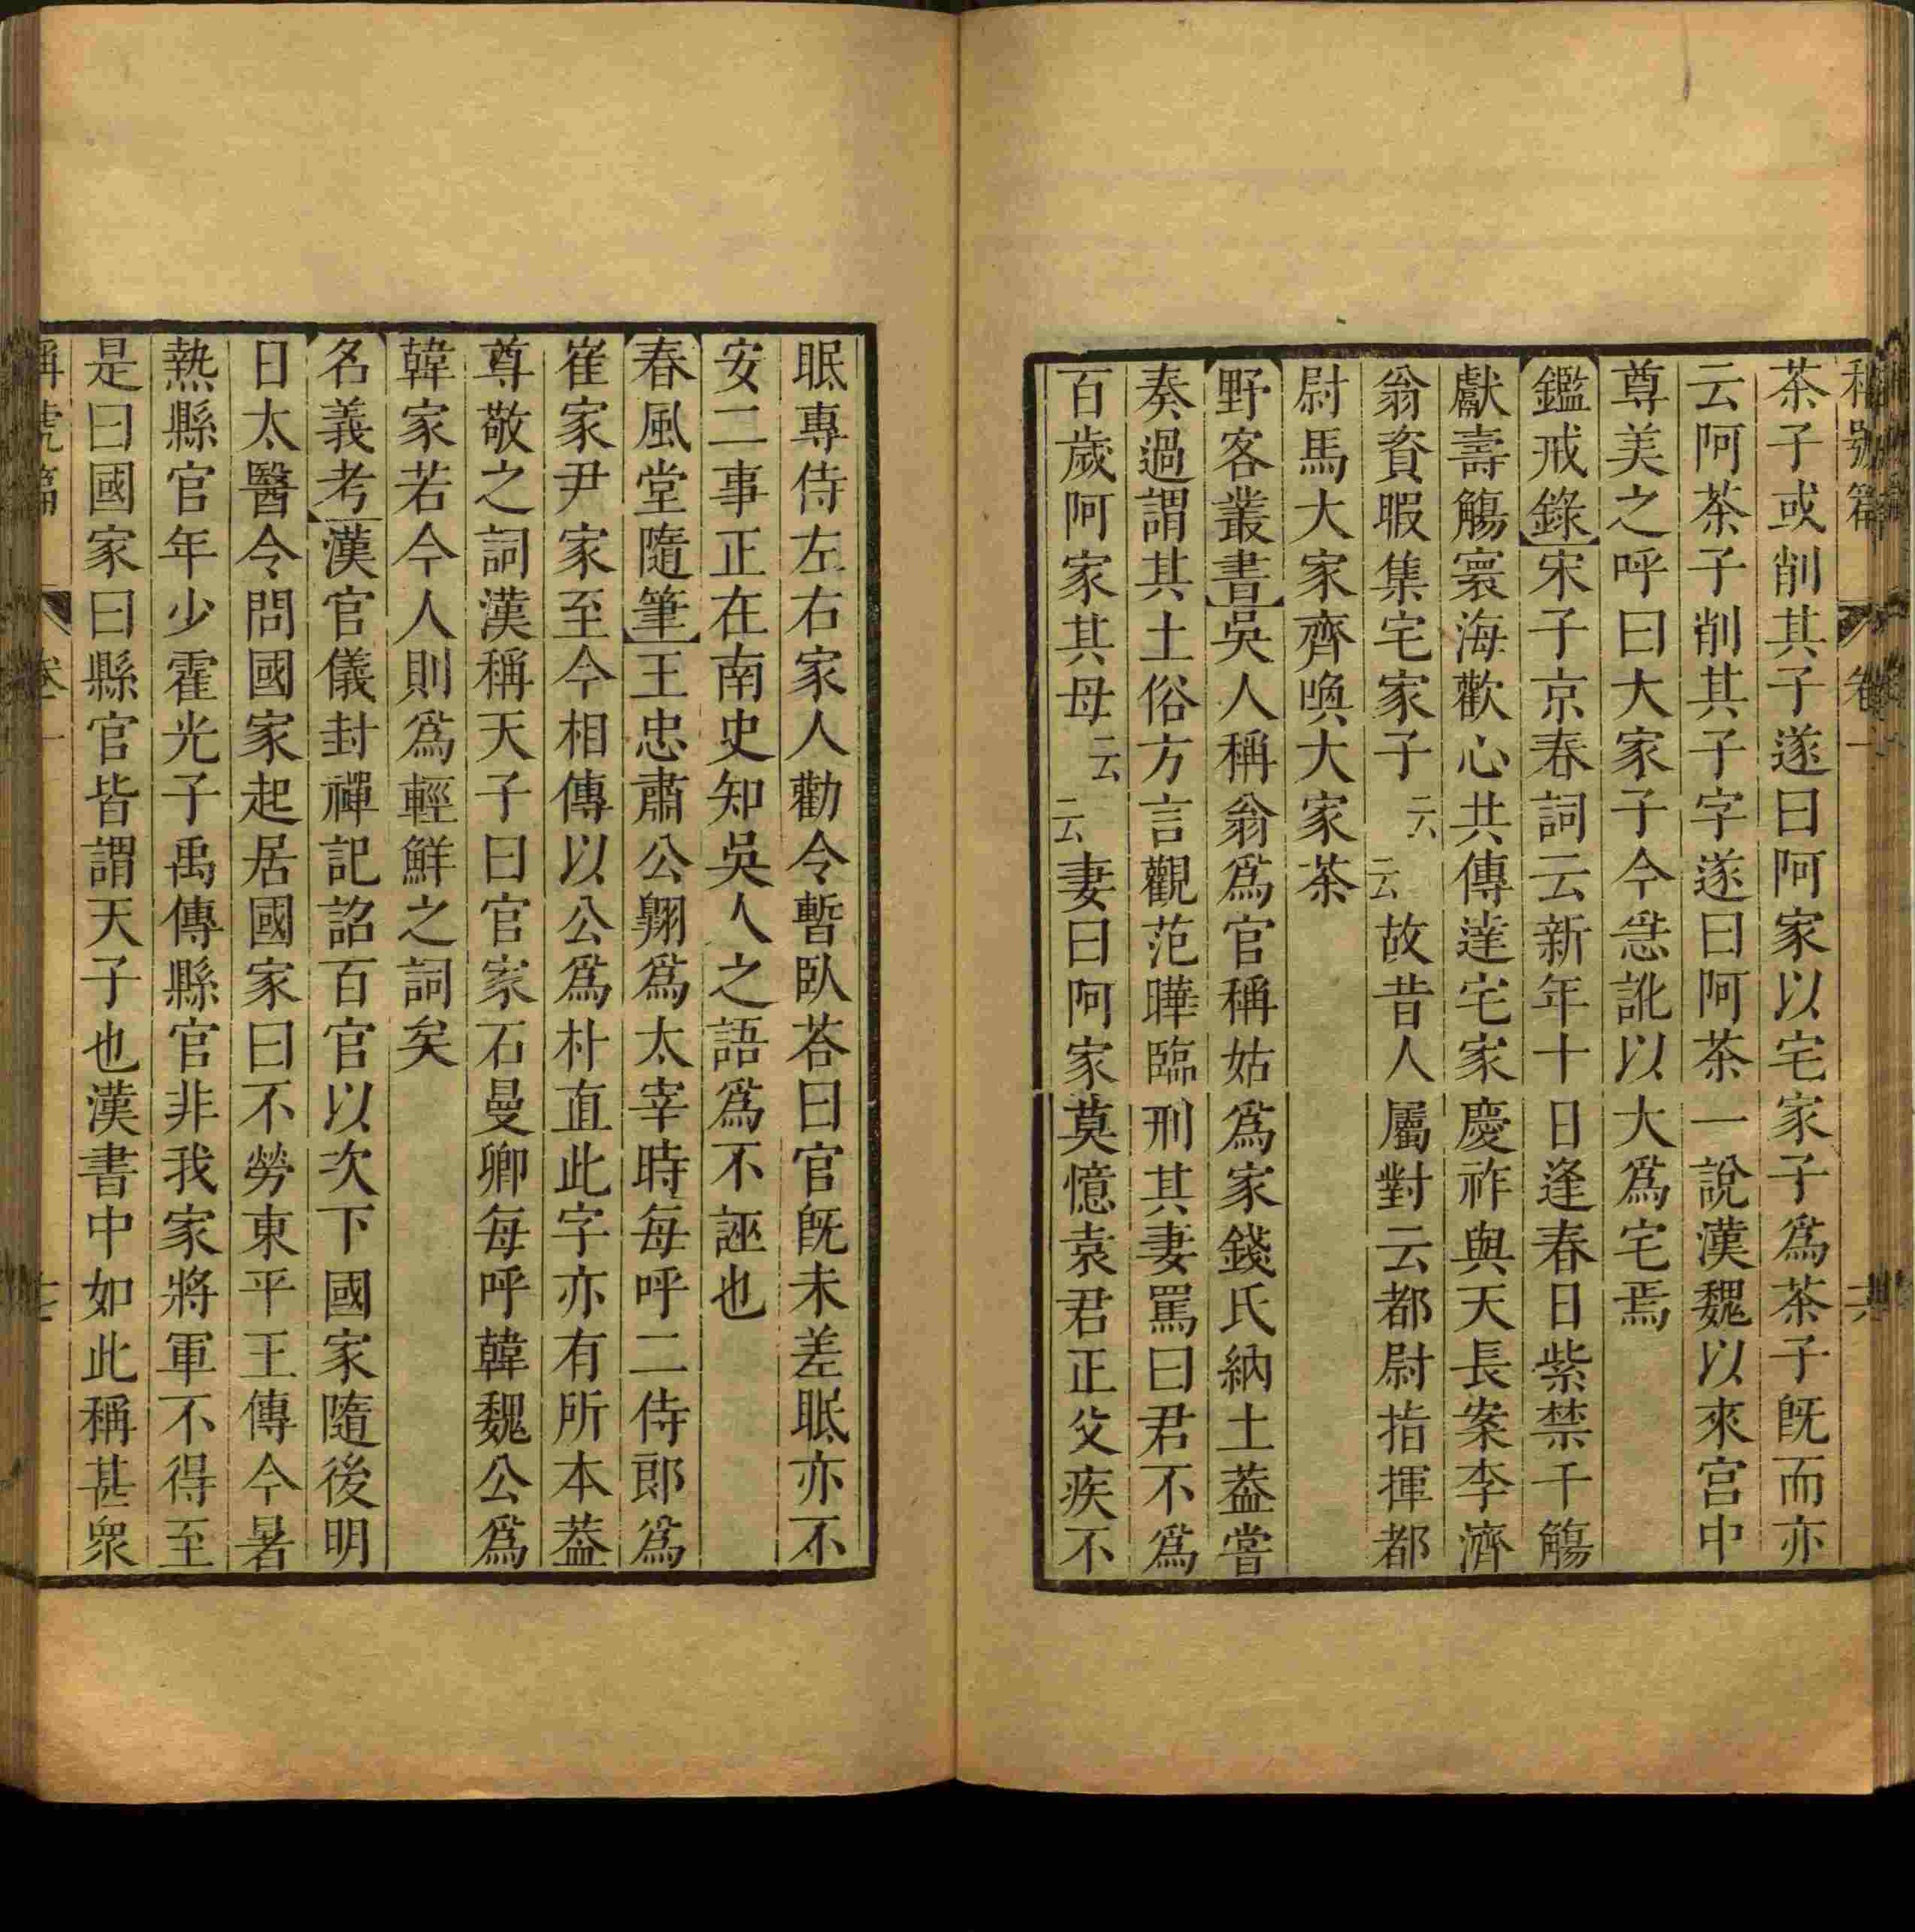 稱號篇 卷一 六
茶子或削其子遂曰阿家以宅家子爲茶子旣而亦
云阿茶子削其子字遂曰阿茶一說漢魏以來宫中
尊美之呼曰大家子今急訛以大爲宅焉
鑑戒錄宋子京春詞云新年十日逢春日紫禁千觴
獻壽觴寰海歡心共傳達宅家慶祚與天長案李濟
翁資暇集宅家子云云故昔人屬對云都尉指揮都
尉馬大家齊喚大家茶
野客叢書吳人稱翁爲官稱姑爲家錢氏納土葢嘗
奏過謂其土俗方言觀范曄臨刑其妻罵曰君不爲
百歲阿家其母云云妻曰阿家莫憶袁君正父疾不
眠專侍左右家人勸令暫臥荅曰官旣未差眠亦不
安二事正在南史知吳人之語爲不誣也
春風堂隨筆王忠肅公翺爲太宰時每呼二侍郎爲
崔家尹家至今相傳以公爲朴直此字亦有所本葢
尊敬之詞漢稱天子曰官家石曼卿每呼韓魏公爲
韓家若今人則爲輕鮮之詞矣
名義考漢官儀封禪記詔百官以次下國家隨後明
日太醫令問國家起居國家曰不勞東平王傳今暑
熱縣官年少霍光子禹傳縣官非我家將軍不得至
是曰國家曰縣官皆謂天子也漢書中如此稱甚衆
稱號篇 卷一 七